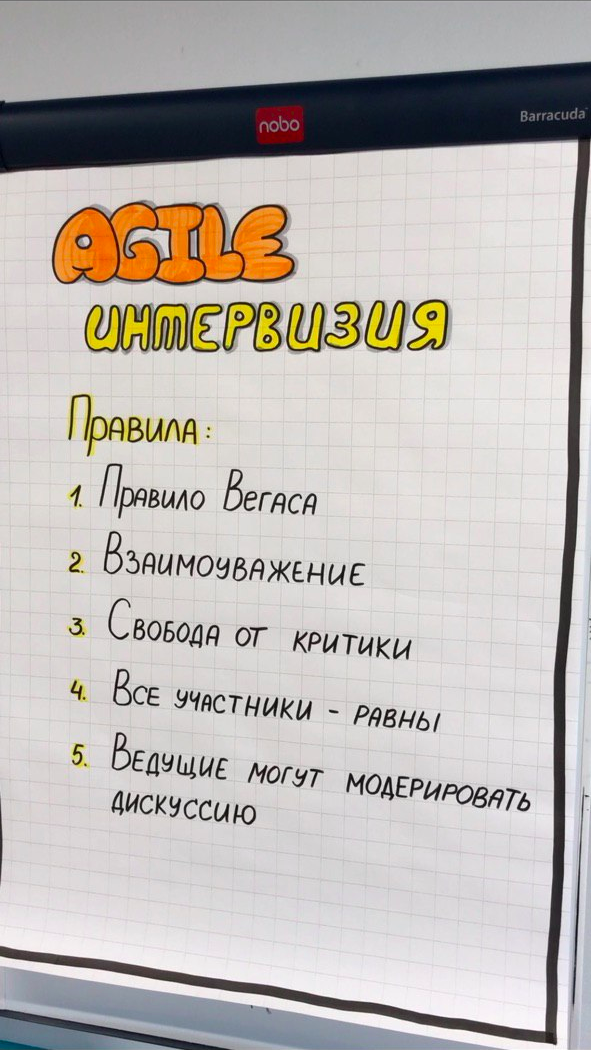 nobo
Barracuda
AGILE
ИНТЕРВИЗИЯ
Правила:
1. Правило Вегаса
2. Взаимоуважение
3. Свобода от критики
4. Все участники - равны
5. Ведущие могут модерировать
дискуссию